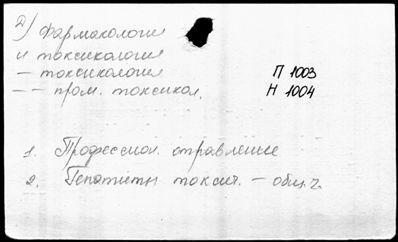 2) Фармакология
и токсикология
– токсикология
– – пром. токсикол.
П 1003
Н 1004
1. Професcион. отравление
2. Гепатиты токсич. – общ. ч.